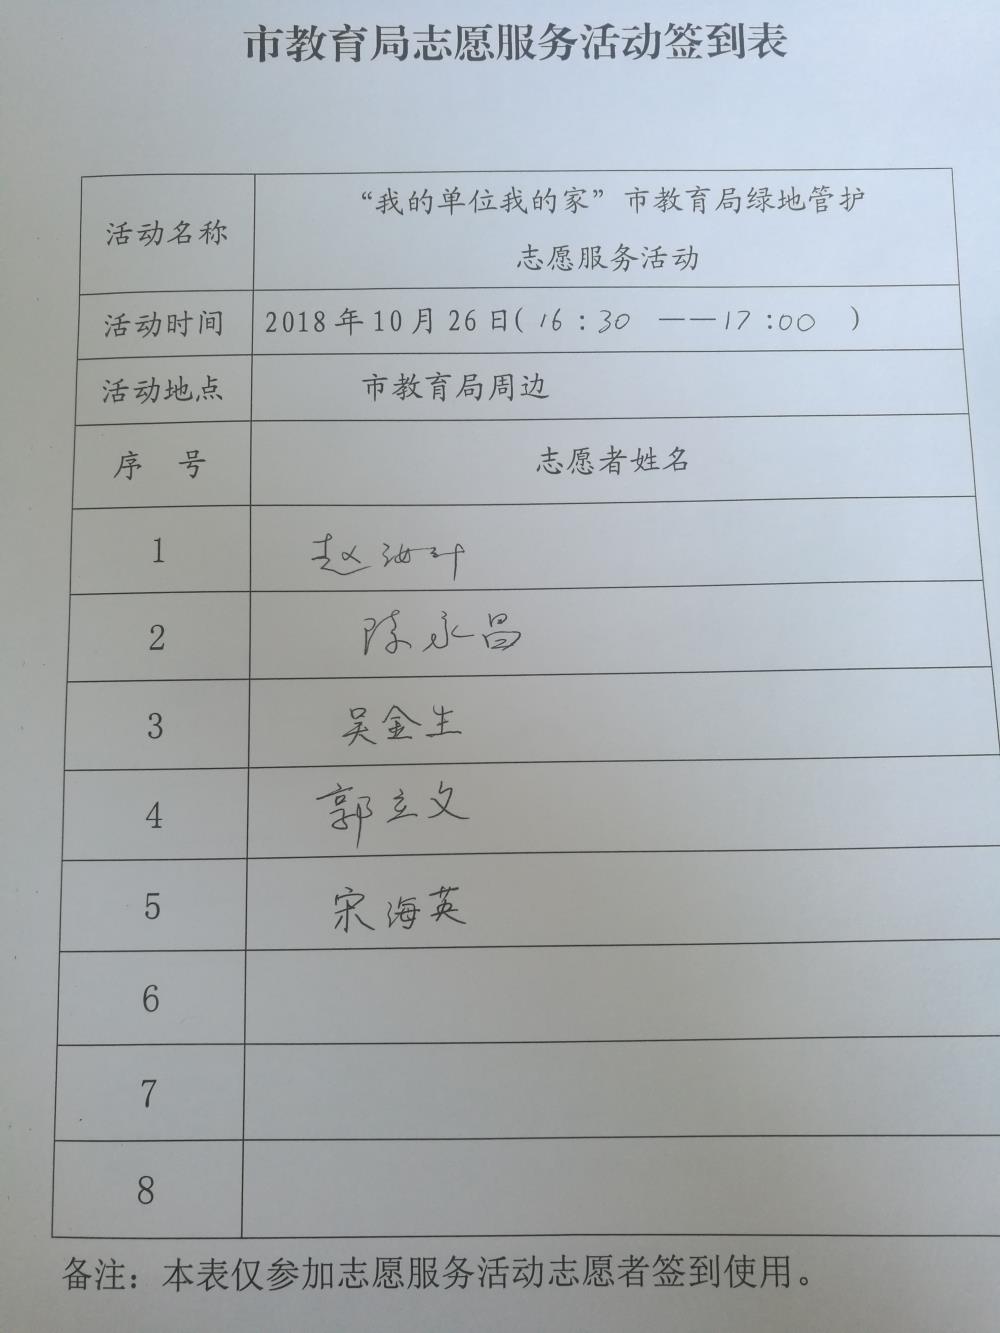 市教育局志愿服务活动签到表
活动名称
“我的单位我的家”市教育局绿地管护
志愿服务活动
活动时间
2018年10月26日(16:30 ——17:00 )
活动地点
市教育局周边
序 号
志愿者姓名
1
赵汝叶
2
陈永昌
3
吴金生
4
郭立文
5
宋海英
6
7
8
备注：本表仅参加志愿服务活动志愿者签到使用。